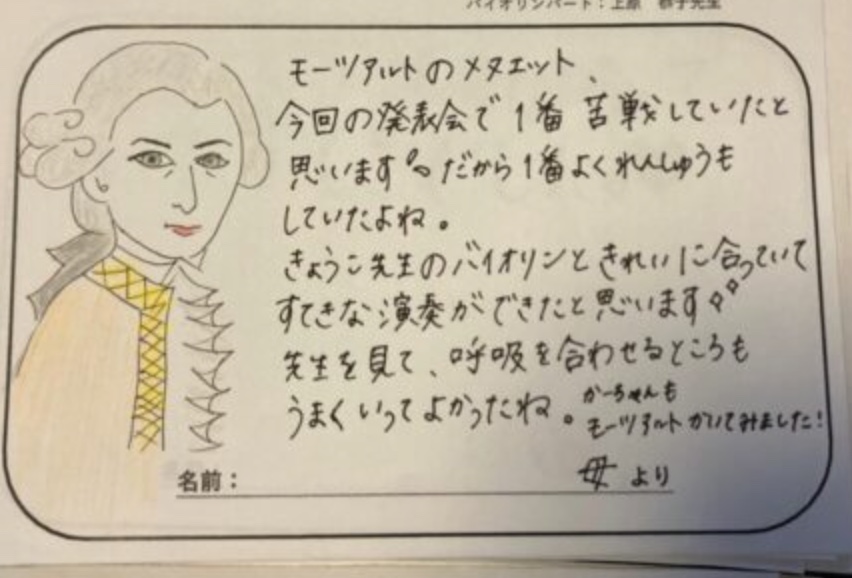 バイオリンパート：上原　恭子先生
モーツアルトのメヌエット、
今回の発表会で1番苦戦していたと
思います。だから1番よくれんしゅうも
していたよね。
きょうこ先生のバイオリンときれいに合っていて
すてきな演奏ができたと思います
先生を見て、呼吸を合わせるところも
うまくいってよかったね。
かーちゃんも
モーツアルトかいてみました！
名前：
母より